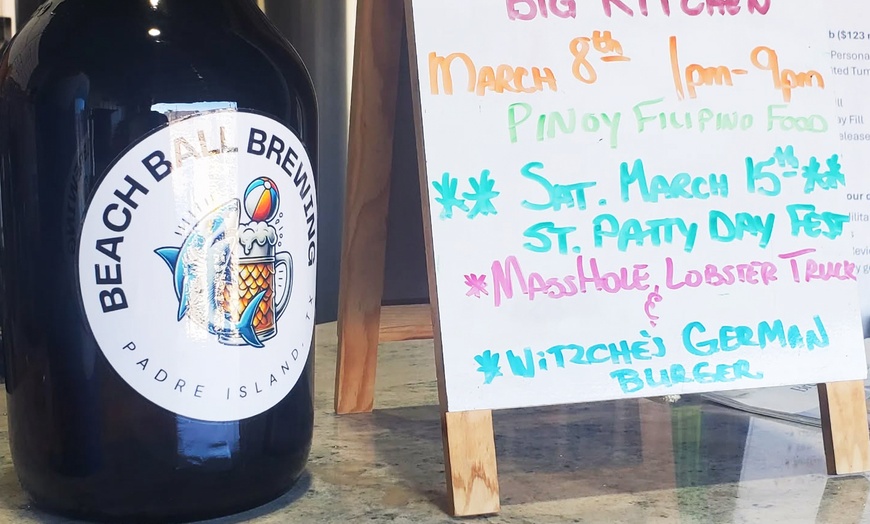 BEACH BALL BREWING
PADRE ISLAND, TX
BIG KITCHEN
MARCH 8th 1pm-9pm
PINOY FILIPINO FOOD
** SAT. MARCH 15th **
ST. PATTY DAY FEST
* MASSHOLE LOBSTER TRUCK
&
* WITZCHE'S GERMAN
BURGER
b ($123
Persona
ted Tum
ill
ay Fill
elease
our